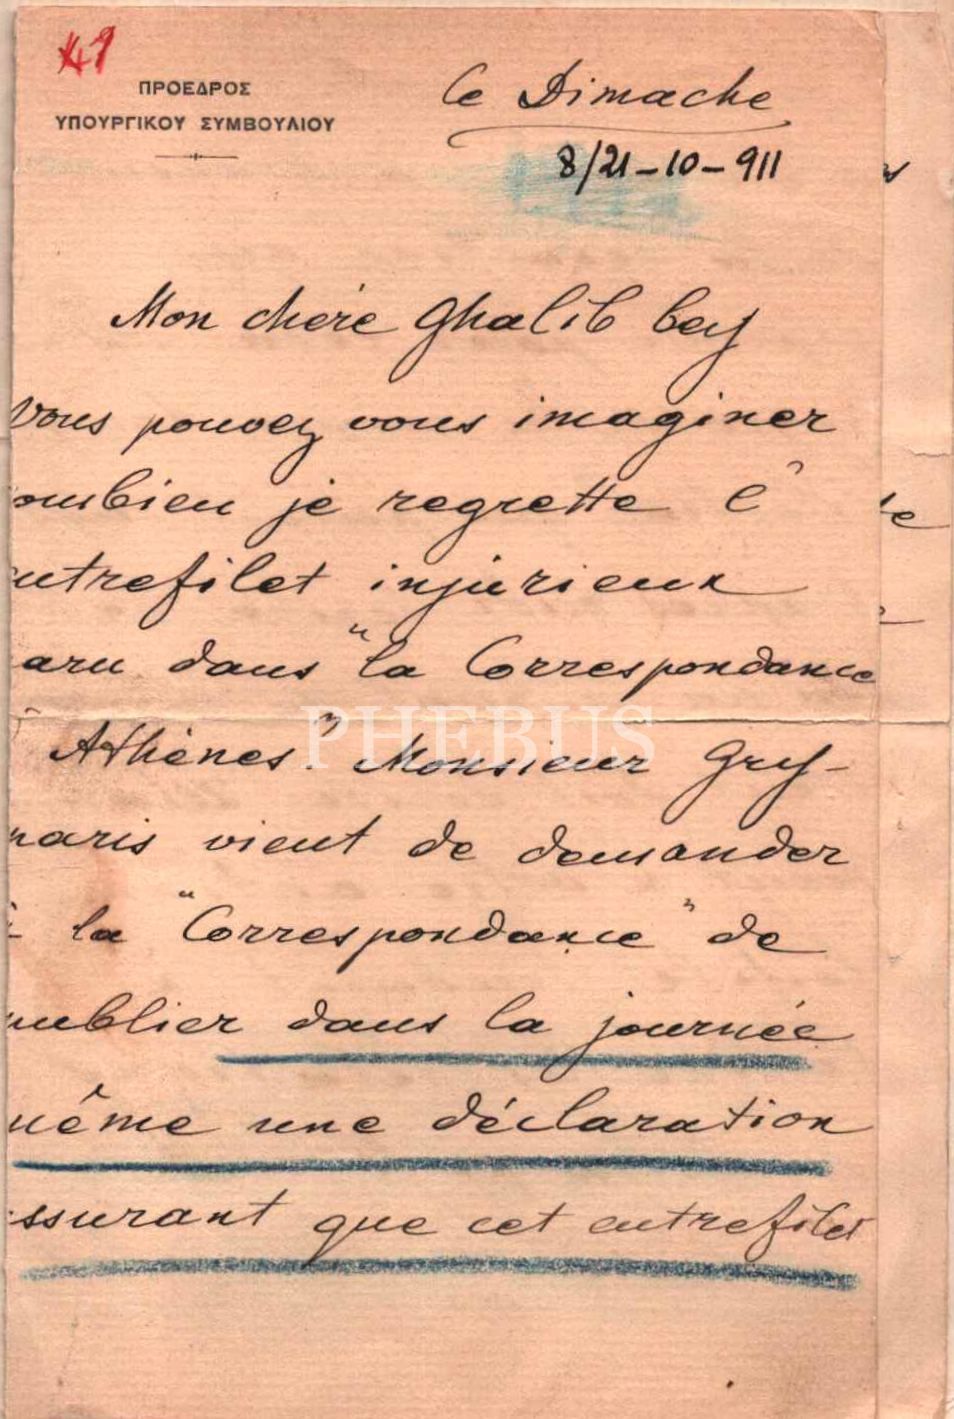 41
ΠΡΟΕΔΡΟΣ
ΥΠΟΥΡΓΙΚΟΥ ΣΥΜΒΟΥΛΙΟΥ
Ce Dimache
8/21-10-911
Mon chère Ghalib bey
Vous pouvez vous imaginer
ombien je regrette l'
ntrefilet injurieux
aru dans "la Correspondance
Athènes". Monsieur Gry-
naris vient de demander
la "Correspondance" de
publier dans la journée
même une déclaration
ssurant que cet entrefilet
PHEBUS